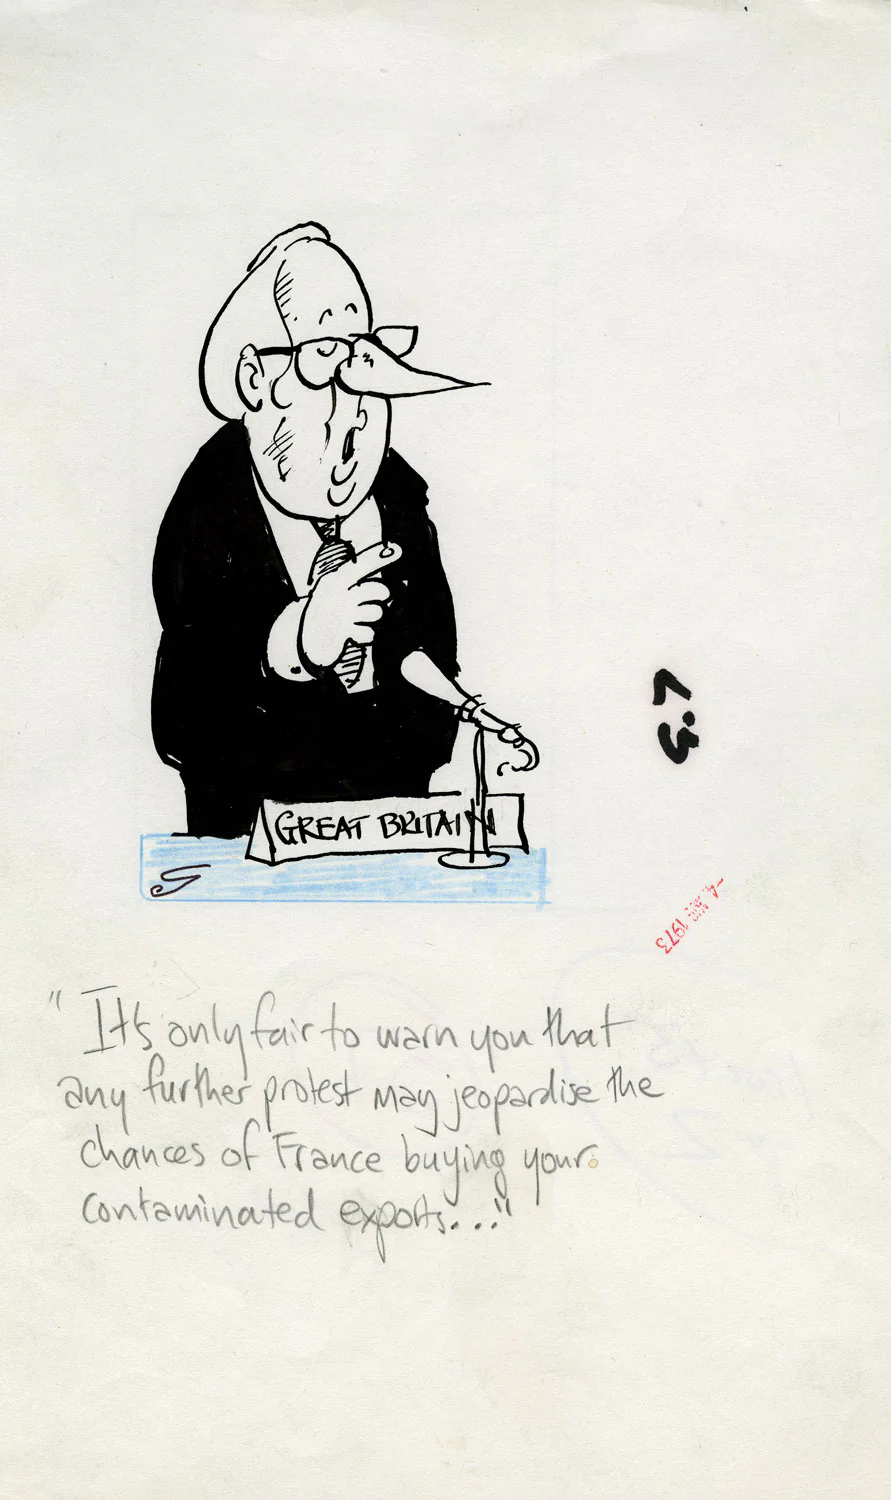 GREAT BRITAIN
5.7
"It's only fair to warn you that
any further protest may jeopardise the
chances of France buying your
contaminated exports..."